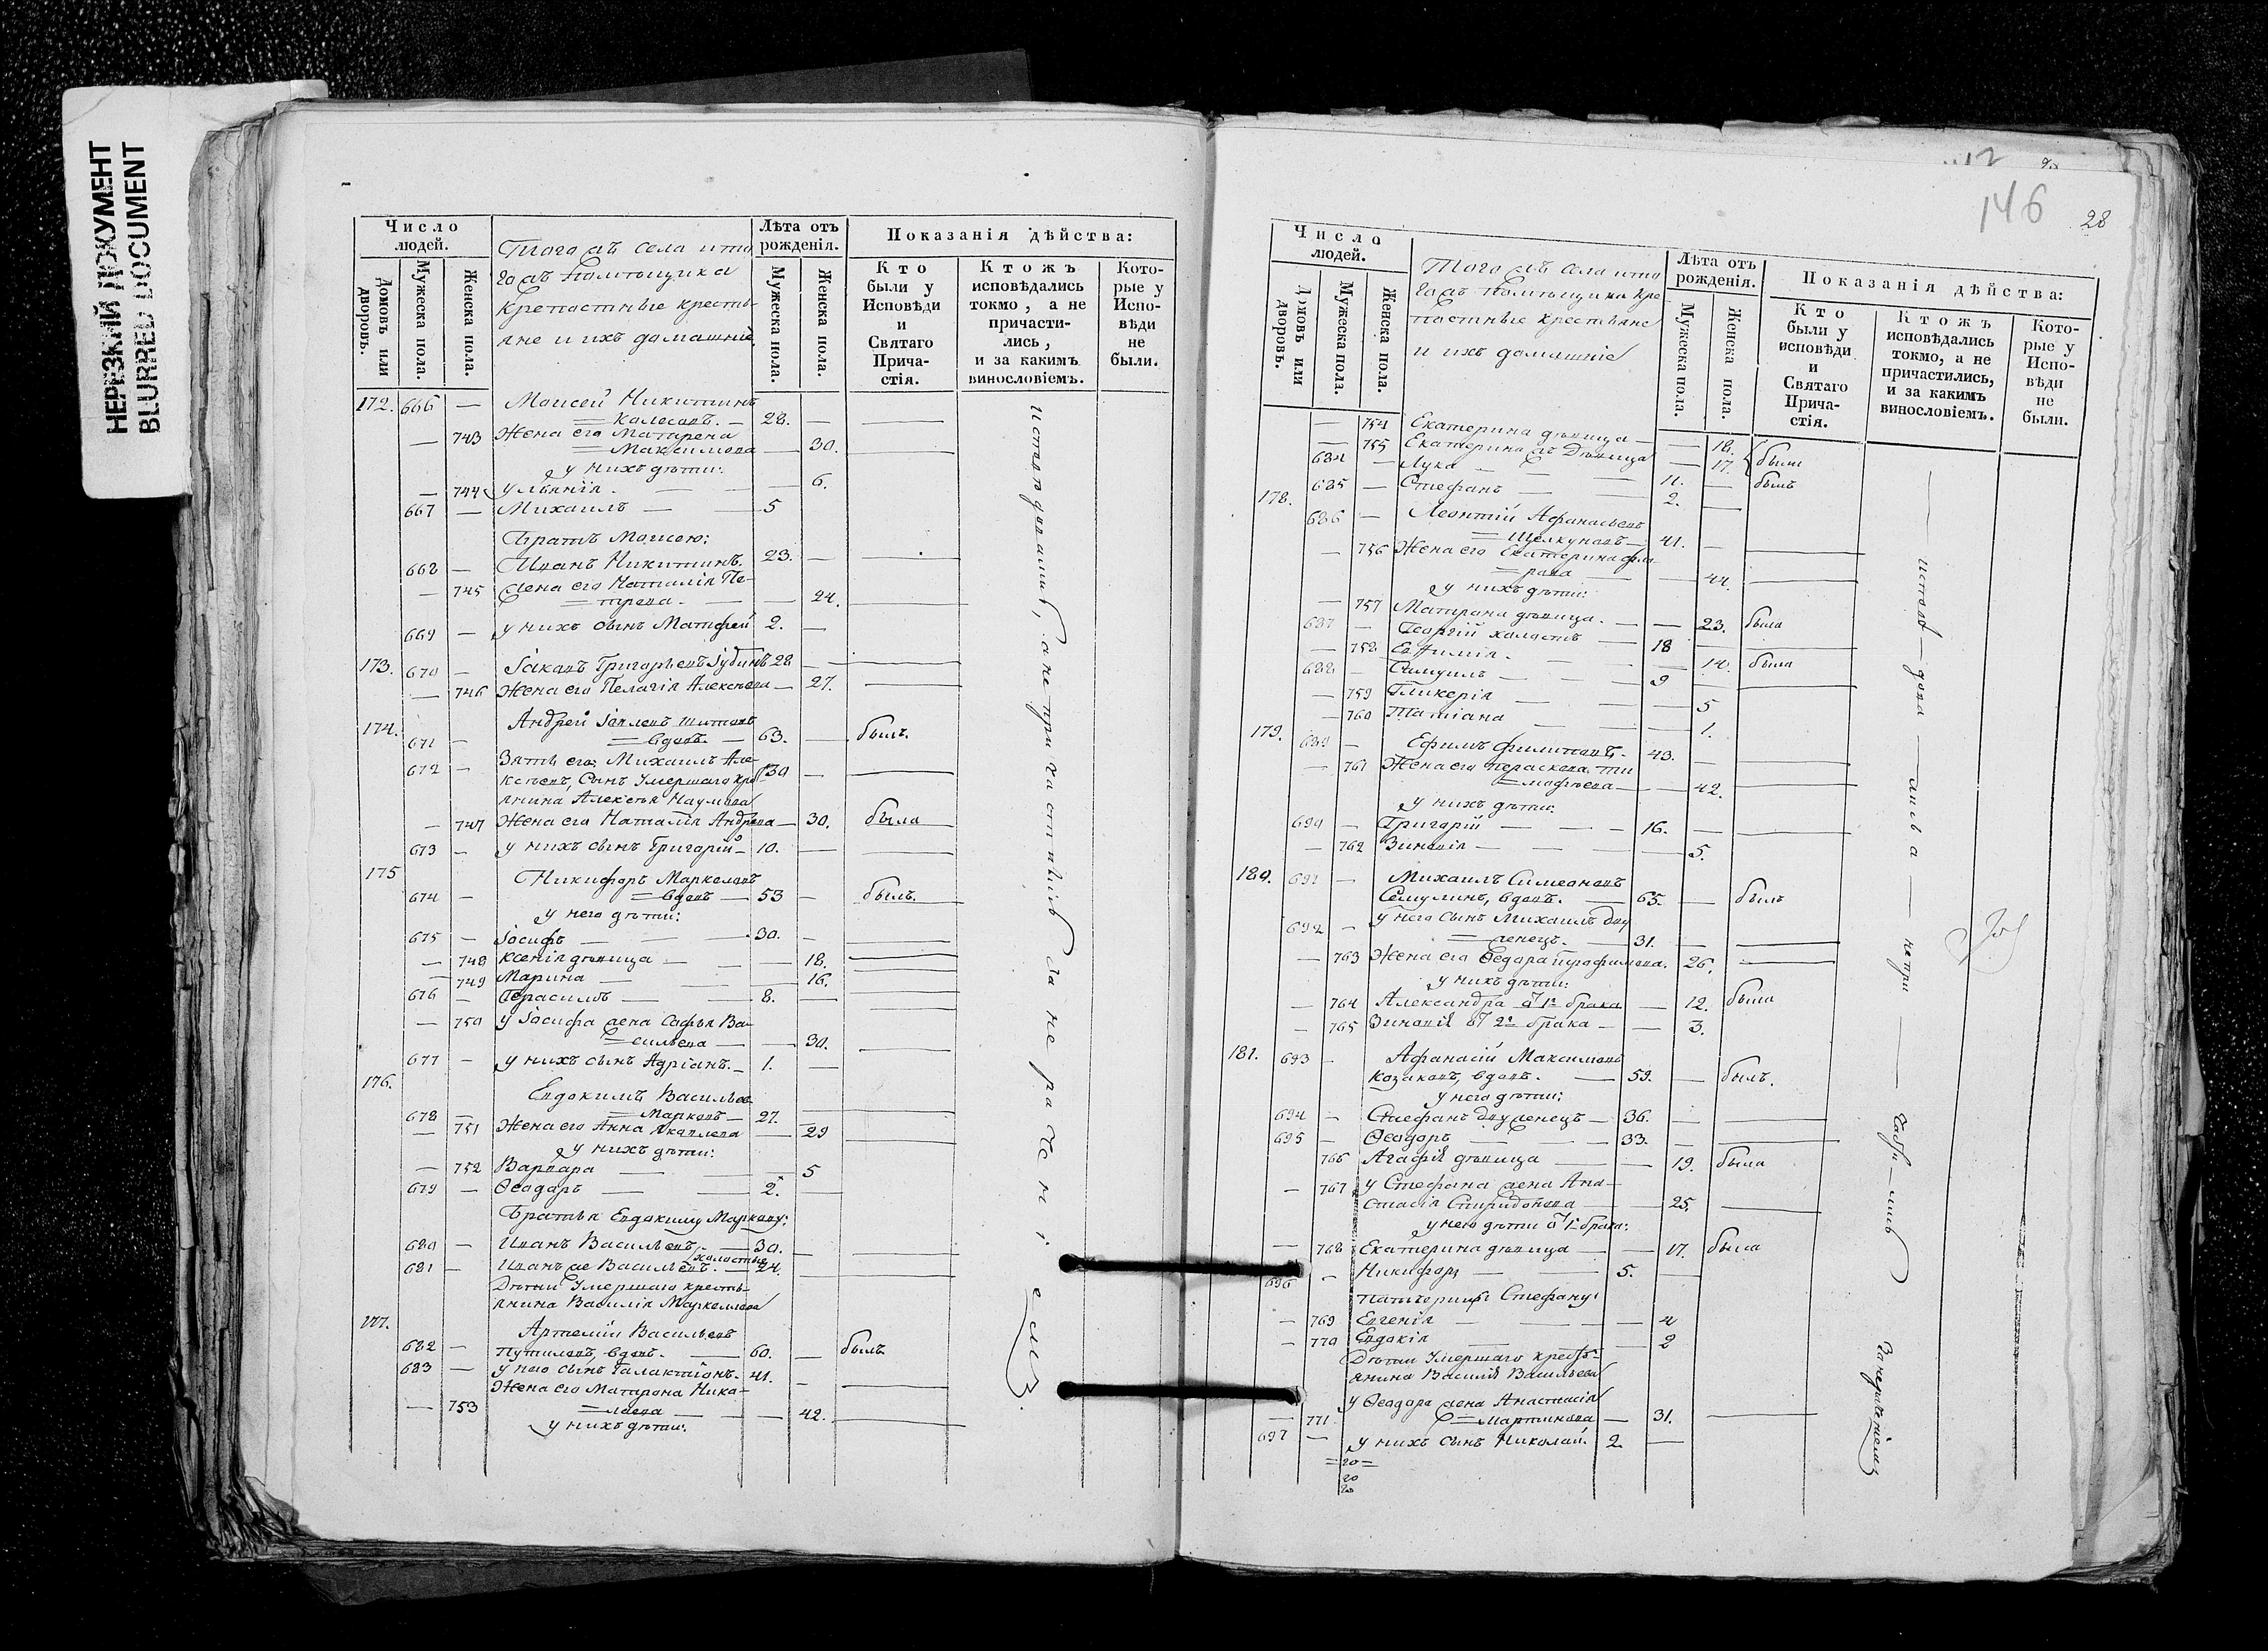 НЕРЕЗКИЙ ДОКУМЕНТ
BLURRED DOCUMENT
Число людей.
Домовъ или дворовъ.
Мужеска пола.
Женска пола.
Тогожъ села и то
гожъ помѣщика
крепостные кресть-
яне и ихъ домашніе
Лѣта отъ рожденія.
Мужеска пола.
Женска пола.
Показанія дѣйства:
Кто были у Исповѣди и Святаго Прича-стія.
Ктожъ исповѣдались токмо, а не причасти-лись, и за какимъ винословіемъ.
Кото-рые у Испо-вѣди не были.
172. 666 — Моисей Никитинъ
= Колесовъ. — 28. —
— 743 Жена его Матрена
= Максимова — 30.
у нихъ дѣти:
— 744 Ульянія. — — 6.
667 — Михаилъ — 5
Братъ Моисею:
668 — Иванъ Никитинъ. 23. —
— 745 Жена его Наталія Пе-
= трова. — — 24.
669 — у нихъ сынъ Матфей 2. —
173. 670 — Іаковъ Григорьевъ Зубинъ 28 —
— 746 Жена его Пелагія Алексѣева — 27.
174. Андрей Іевлевъ Шитовъ
671 — = вдовъ. — 63. — былъ.
672 — Зять его, Михаилъ Але-
ксѣевъ, Сынъ Умершаго кре 30 —
янина Алексѣя Наумова
— 747 Жена его Наталія Андреева — 30. была
673 — у нихъ сынъ Григорій — 10. —
175 Никифоръ Маркеловъ
674 — = вдовъ — 53 — былъ.
у него дѣти:
675 — Іосифъ — 30. —
— 748 Ксенія дѣвица — — 18.
— 749 Марина — — 16.
676 — Герасимъ — 8. —
— 750 у Іосифа жена Софья Ва-
= сильева — — 30.
677 — у нихъ сынъ Адріанъ. — 1. —
176. Евдокимъ Васильев
678 — = Марковъ — 27. —
— 751 Жена его Анна Іаковлева — 29
у нихъ дѣти:
— 752 Варвара — — 5
679 — Ѳеодоръ — 2. —
Братья Евдокиму Маркову:
680 — Иванъ Васильевъ, — 30. —
холостые
681 — Иванъ же Васильевъ. — 24. —
Дѣти Умершаго кресть-
янина Василія Маркеллова
177. Артемій Васильевъ
682 — Путиловъ, вдовъ. — 60. — былъ
683 — у него сынъ Галактіонъ. 41. —
Жена его Матрона Нико-
— 753 = лаева — — 42.
у нихъ дѣти:
исповѣдались, а не причастились за нераченіемъ.
146
28
Число людей.
Домовъ или дворовъ.
Мужеска пола.
Женска пола.
Тогожъ села и то
гожъ помѣщика кре
постные крестьяне
и ихъ домашніе
Лѣта отъ рожденія.
Мужеска пола.
Женска пола.
Показанія дѣйства:
Кто были у исповѣди и Святаго Прича-стія.
Ктожъ исповѣдались токмо, а не причастились, и за какимъ винословіемъ.
Кото-рые у Испо-вѣди не были.
— 754 Екатерина дѣвица — — 18. были
— 755 Екатерина жъ Дѣвица — 17.
684 — Лука — 11. — былъ
685 — Стефанъ — 2. —
178. 686 — Леонтій Афанасьевъ
= Щелкуновъ — 41. —
— 756 Жена его Екатерина Фла
= рова — — 44.
у нихъ дѣти:
— 757 Матрона дѣвица. — — 23. была
687 — Георгій холостъ — 18 —
— 758 Евфимія. — — 14. была
688 — Самуилъ — 9 —
— 759 Гликерія — — 5
— 760 Татіана — — 1.
179. 689 — Ефимъ Филиповъ. — 43. —
— 761 Жена его Параскева Ти
= мофѣева — — 42.
у нихъ дѣти:
690 — Григорій — 16. —
— 762 Зиновія — — 5.
180. 691 — Михаилъ Симеоновъ
Семулинъ, вдовъ. — 65. — былъ
692 — у него сынъ Михаилъ дву
= женецъ. — 31. —
— 763 Жена его Ѳедора Трофимова. 26.
у нихъ дѣти:
— 764 Александра от 1го брака — 12. была
— 765 Зиновія от 2го брака — — 3.
181. 693 — Афанасій Максимовъ
Козаковъ, вдовъ. — 59. — былъ.
у него дѣти:
694 — Стефанъ двуженецъ — 36. —
695 — Ѳеодоръ — 33. —
766 Агафія дѣвица — — 19. была
— 767 у Стефана жена Ана-
стасія Спиридонова — 25.
у него дѣти от 1го брака:
— 768 Екатерина дѣвица — — 17. была
696 — Никифоръ — 5. —
Патчерицы Стефану:
— 769 Евгенія — — 4
— 770 Евдокія — — 2
Дѣти Умершаго кресть-
янина Василія Васильева
у Ѳеодора жена Анастасія
— 771 = Мартинова — 31.
697 — у нихъ сынъ Николай. 2. —
исповѣдовались непричастив за нераченіемъ